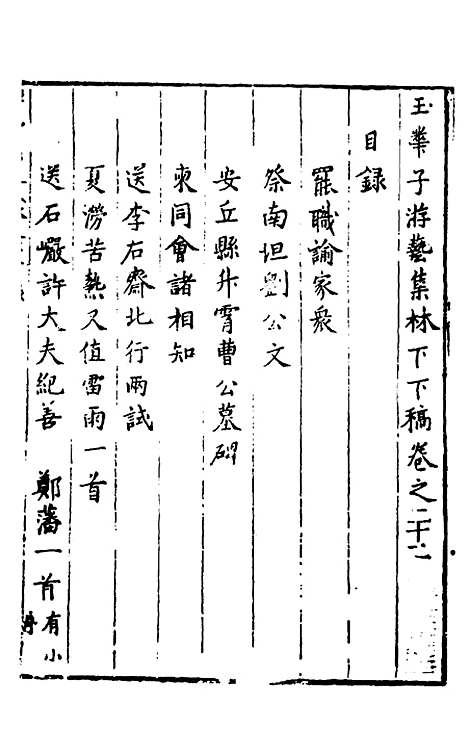 玉華子游藝集林下下稿卷之二十
目錄
罷職諭家衆
祭南坦劉公文
安丘縣升霄曹公墓碑
柬同會諸相知
送李右齋北行兩試
夏澇苦熱又值雷雨一首
送石巖許大夫紀善　鄭藩一首有小